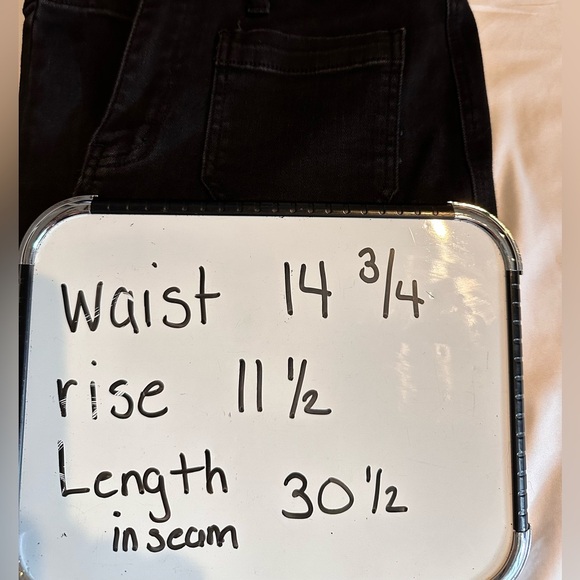 Waist 14 3/4
rise 11 1/2
Length 30 1/2
in seam